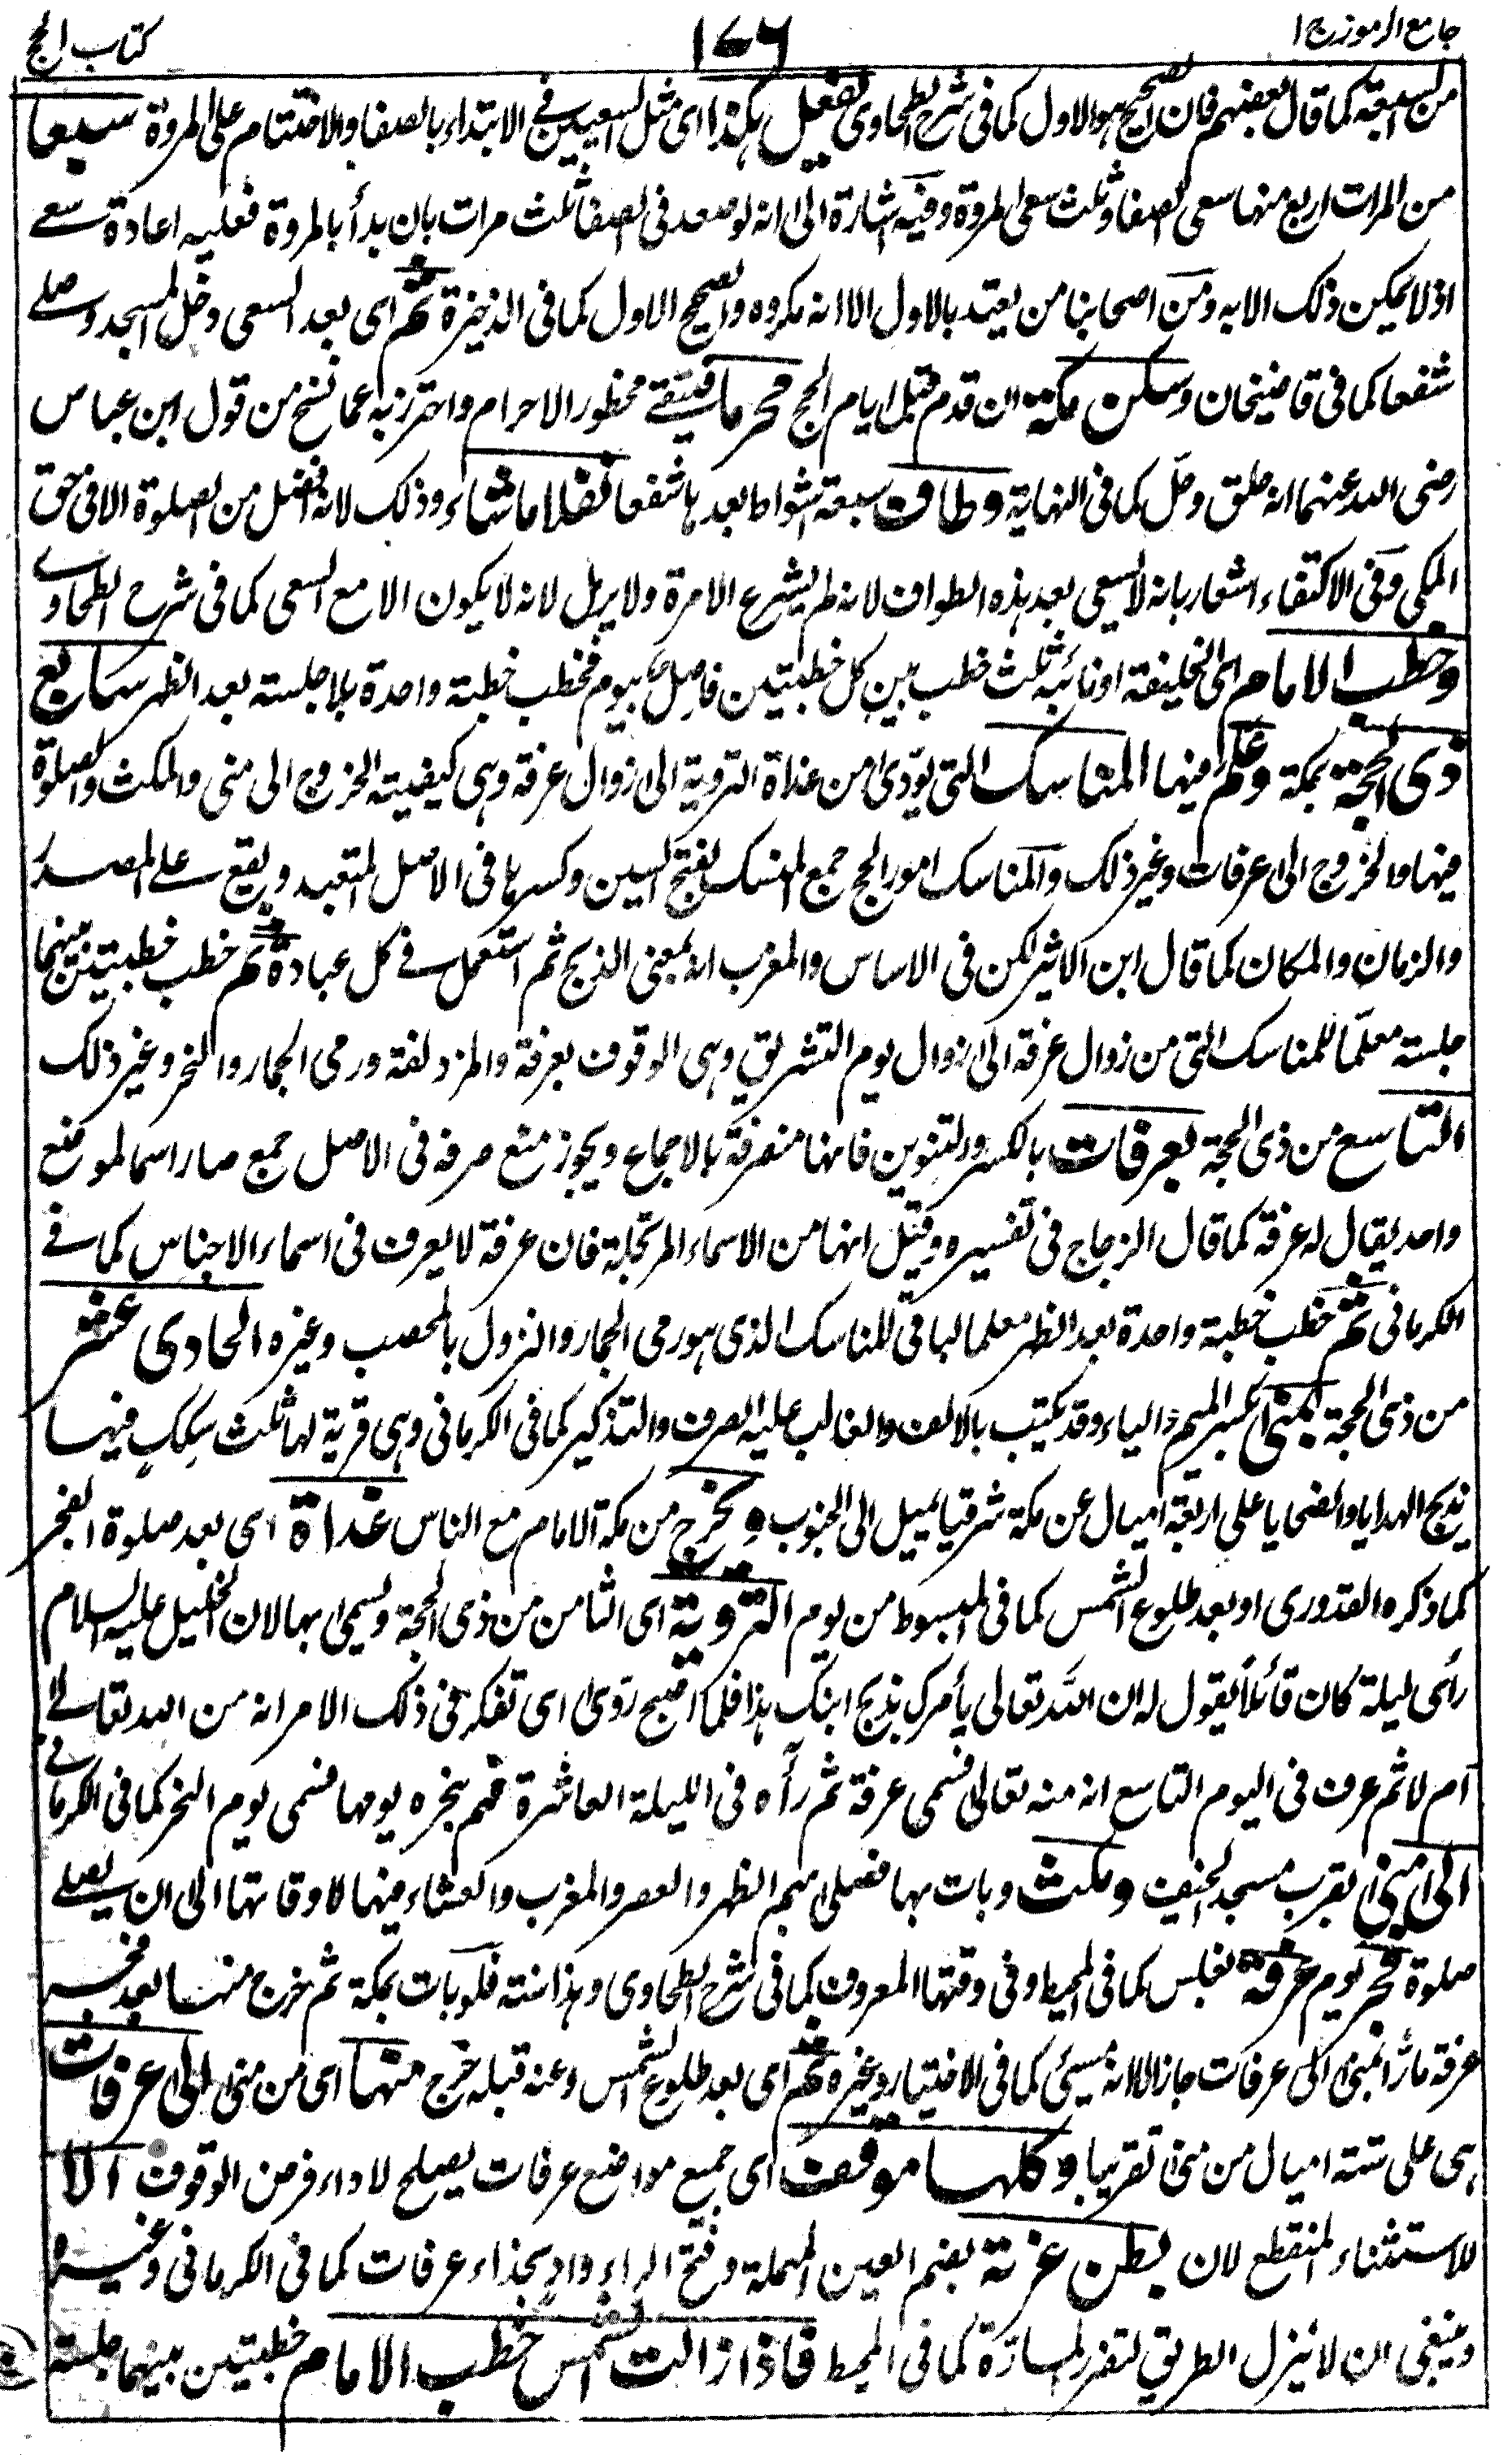 جامع الرموز ج ١
١٧٦
كتاب الحج
من السبعة كما قال بعضهم فان الصحيح هو الاول كما فى شرح الطحاوى يفعل هكذا اى مثل السعيين فى الابتداء بالصفا والاختتام على المروة سبعا
من المرات اربع منها سعى الصفا وثلث سعى المروة وفيه اشارة الى انه لو صعد فى الصفا ثلث مرات بان بدأ بالمروة فعليه اعادة سعى
اذ لا يمكن ذلك الا به ومن اصحابنا من يعتد بالاول الا انه مكروه والصحيح الاول كما فى الذخيرة ثم اى بعد السعى دخل المسجد وصلى
شفعا كما فى قاضيخان وسكن مكة ان قدم قبل ايام الحج محرما فيتقى محظور الاحرام واحترز به عما نسخ من قول ابن عباس
رضى الله عنهما انه حلق وحل كما فى النهاية وطاف سبعة اشواط بعدها شفعا نفلا ما شاء وذلك لانه افضل من الصلوة الا فى حق
المكى وفى الاكتفاء اشعار بانه لا يسعى بعد هذه الطواف لانه لم يشرع الا مرة ولا يرمل لانه لا يكون الا مع السعى كما فى شرح الطحاوى
وخطب الامام اى الخليفة او نائبه ثلث خطب بين كل خطبتين فاصل بيوم فخطب خطبة واحدة بلا جلسة بعد الظهر سابع
ذى الحجة بمكة وعلم فيها المناسك التى يؤدى من غداة التروية الى زوال عرفة وهى كيفية الخروج الى منى والمكث والصلوة
فيها والخروج الى عرفات وغير ذلك والمناسك امور الحج جمع المنسك بفتح السين وكسرها فى الاصل المتعبد ويقع على المصدر
والزمان والمكان كما قال ابن الاثير لكن فى الاساس والمغرب انه بمعنى الذبح ثم استعمل فى كل عبادة ثم خطب خطبتين بينهما
جلسة معلما للمناسك التى من زوال عرفة الى زوال يوم التشريق وهى الوقوف بعرفة والمزدلفة ورمى الجمار والنحر وغير ذلك
التاسع من ذى الحجة بعرفات بالكسر والتنوين فانها منصرفة بالاجماع ويجوز منع صرفه فى الاصل جمع صار اسما لموضع
واحد يقال له عرفة كما قال الزجاج فى تفسيره وقيل انها من الاسماء المرتجلة فان عرفة لا يعرف فى اسماء الاجناس كما فى
الكرمانى ثم خطب خطبة واحدة بعد الظهر معلما لباقى المناسك الذى هو رمى الجمار والنزول بالمحصب وغيره الحادى عشر
من ذى الحجة بمنى بكسر الميم والياء وقد يكتب بالالف والغالب عليه الصرف والتذكير كما فى الكرمانى وهى قرية لها ثلث سكك فيها
يذبح الهدايا والضحايا على اربعة اميال عن مكة شرقيا يميل الى الجنوب ويخرج من مكة الامام مع الناس غداة اى بعد صلوة الفجر
كما ذكره القدورى او بعد طلوع الشمس كما فى المبسوط من يوم التروية اى الثامن من ذى الحجة ويسمى بها لان الخليل عليه السلام
رأى ليلة كان قائلا يقول له ان الله تعالى يأمرك بذبح ابنك هذا فلما اصبح روى اى تفكر فى ذلك الامر انه من الله تعالى
ام لا ثم عرف فى اليوم التاسع انه منه تعالى فسمى عرفة ثم رآه فى الليلة العاشرة فهم بنحره يومها فسمى يوم النحر كما فى الكرمانى
الى منى بقرب مسجد الخيف ومكث وبات بها فصلى بهم الظهر والعصر والمغرب والعشاء فيها لاوقاتها الى ان يصلى
صلوة فجر يوم عرفة بغلس كما فى المحيط وفى وقتها المعروف كما فى شرح الطحاوى وهذا سنة فلو بات بمكة ثم خرج منها بعد فجر
عرفة مارا بمنى الى عرفات جاز الا انه مسيئ كما فى الاختيار وغيره ثم اى بعد طلوع الشمس وعنه قبله خرج منها اى من منى الى عرفات
هى على ستة اميال من منى تقريبا وكلها موقف اى جميع مواضع عرفات يصلح لاداء فرض الوقوف الا
للاستثناء المنقطع لان بطن عرنة بضم العين المهملة وفتح الراء واد بحذاء عرفات كما فى الكرمانى وغيره
وينبغى ان لا ينزل الطريق لتضرر المارة كما فى المحيط فاذا زالت الشمس خطب الامام خطبتين بينهما جلسة